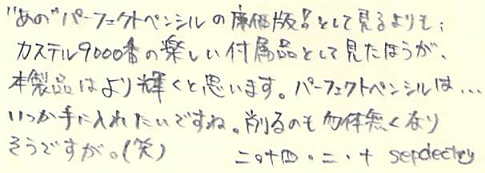 "あの"パーフェクトペンシルの廉価版品として見るよりも；
カステル9000番の楽しい付属品として見たほうが、
本製品はより輝くと思います。パーフェクトペンシルは…
いつか手に入れたいですね。削るのも勿体無くなり
そうですが。(笑)　二〇十四・二・十 sepdectry